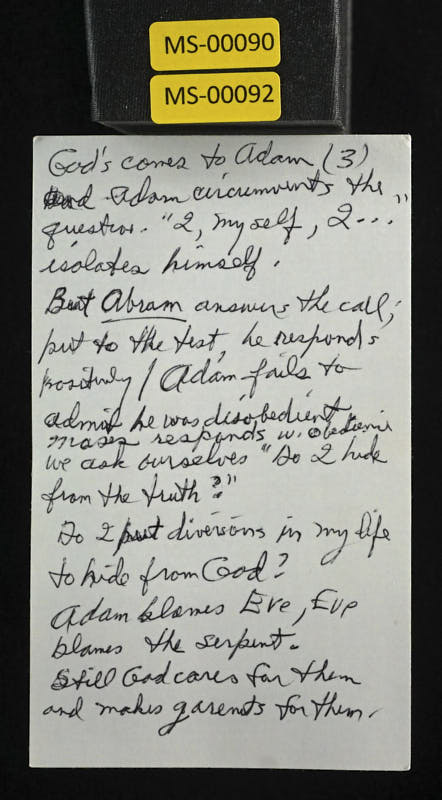 MS-00090
MS-00092
God's comes to Adam (3)
and Adam circumvents the
question. "I, myself, I..."
isolates himself.
But Abram answers the call;
put to the test, he responds
positively / Adam fails to
admit he was disobedient
Moses responds w. obedience
we ask ourselves "Do I hide
from the truth?"
Do I put diversions in my life
to hide from God?
Adam blames Eve, Eve
blames the serpent.
Still God cares for them
and makes garents for them.